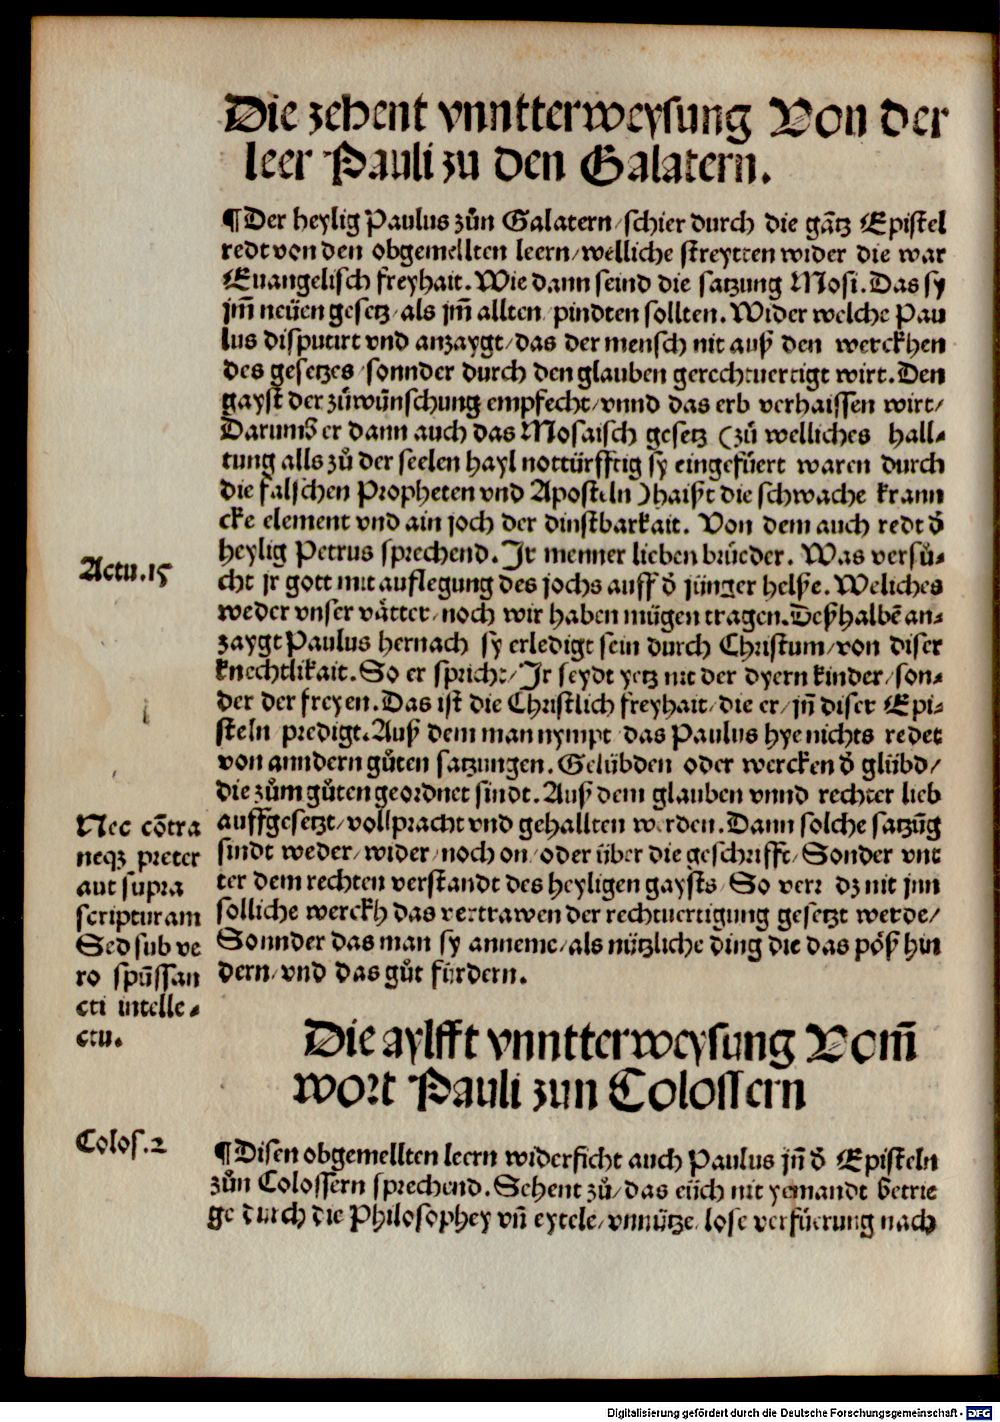 Die zehent vnntterweysung Von der
leer Pauli zu den Galatern.
¶Der heylig Paulus zůn Galatern/schier durch die gātz Epistel
redt von den obgemellten leern/welliche streytten wider die war
Euangelisch freyhait. Wie dann seind die satzung Mosi. Das sy
jm̄ neüen gesetz/als jm̄ allten/pindten sollten. Wider welche Pau
lus disputirt vnd anzaygt/das der mensch nit auß den werckhen
des gesetzes/sonnder durch den glauben gerechtuertigt wirt. Den
gayst der zůwūnschung empfecht/vnnd das erb verhaissen wirt/
Darumb er dann auch das Mosaisch gesetz (zů welliches hall⸗
tung alls zů der seelen hayl nottürfftig sy eingefüert waren durch
die falschen Propheten vnd Aposteln) haißt die schwache krann
cke element vnd ain joch der dinstbarkait. Von dem auch redt d̄
heylig Petrus sprechend. Jr menner lieben brüeder. Was versů⸗
cht jr gott mit auflegung des jochs auff d̄ jünger helße. Weliches
weder vnser vätter/noch wir haben mügen tragen. Deßhalbē an⸗
zaygt Paulus hernach sy erledigt sein durch Christum/von diser
knechtlikait. So er spricht/Jr seydt yetz nit der dyern kinder/son⸗
der der freyen. Das ist die Christlich freyhait/die er/jn̄ diser Epi⸗
steln predigt. Auß dem man nympt das Paulus hye nichts redet
von anndern gůten satzungen. Gelübden oder wercken d̄ glübd/
die zům gůten geordnet sindt. Auß dem glauben vnnd rechter lieb
auffgesetzt/vollpracht vnd gehallten werden. Dann solche satzūg
sindt weder/wider/noch on/oder über die geschrifft/Sonder vnt
ter dem rechten verstandt des heyligen gaysts/So verr dz nit jnn
solliche werckh das vertrawen der rechtuertigung gesetzt werde/
Sonnder das man sy anneme/als nützliche ding die das pöß hin
dern/vnd das gůt fürdern.
Actu.15
Nec cōtra
neqz preter
aut supra
scripturam
Sed sub ve
ro spūssan
cti intelle⸗
ctu.
Die aylfft vnntterweysung Vom̄
wort Pauli zun Colossern
Colos.2
¶Disen obgemellten leern widerficht auch Paulus jn̄ d̄ Episteln
zůn Colossern sprechend. Sehent zů/das eüch nit yemandt betrie
ge durch die Philosophey vn̄ eytele/vnnütze/lose verfüerung nach
Digitalisierung gefördert durch die Deutsche Forschungsgemeinschaft - DFG